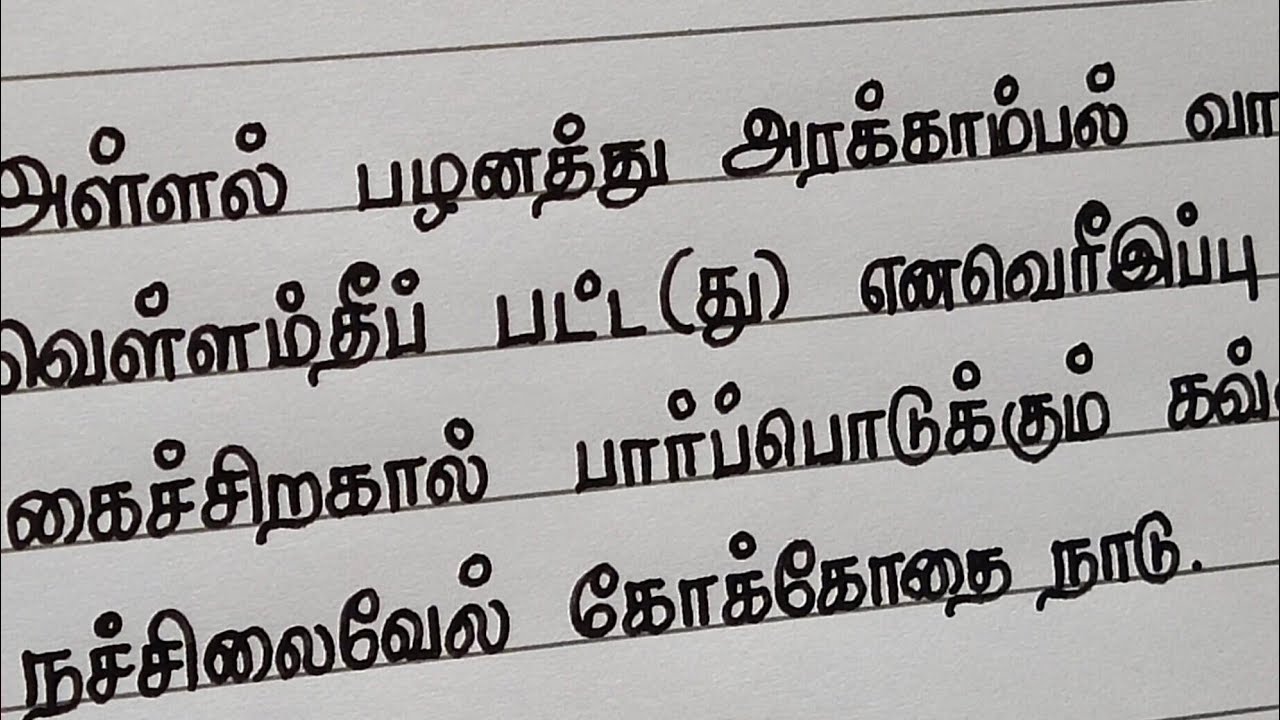 அள்ளல் பழனத்து அரக்காம்பல் வா
வெள்ளம்தீப் பட்ட(து) எனவெரீஇப்பு
கைச்சிறகால் பார்ப்பொடுக்கும் கவ்
நச்சிலைவேல் கோக்கோதை நாடு.